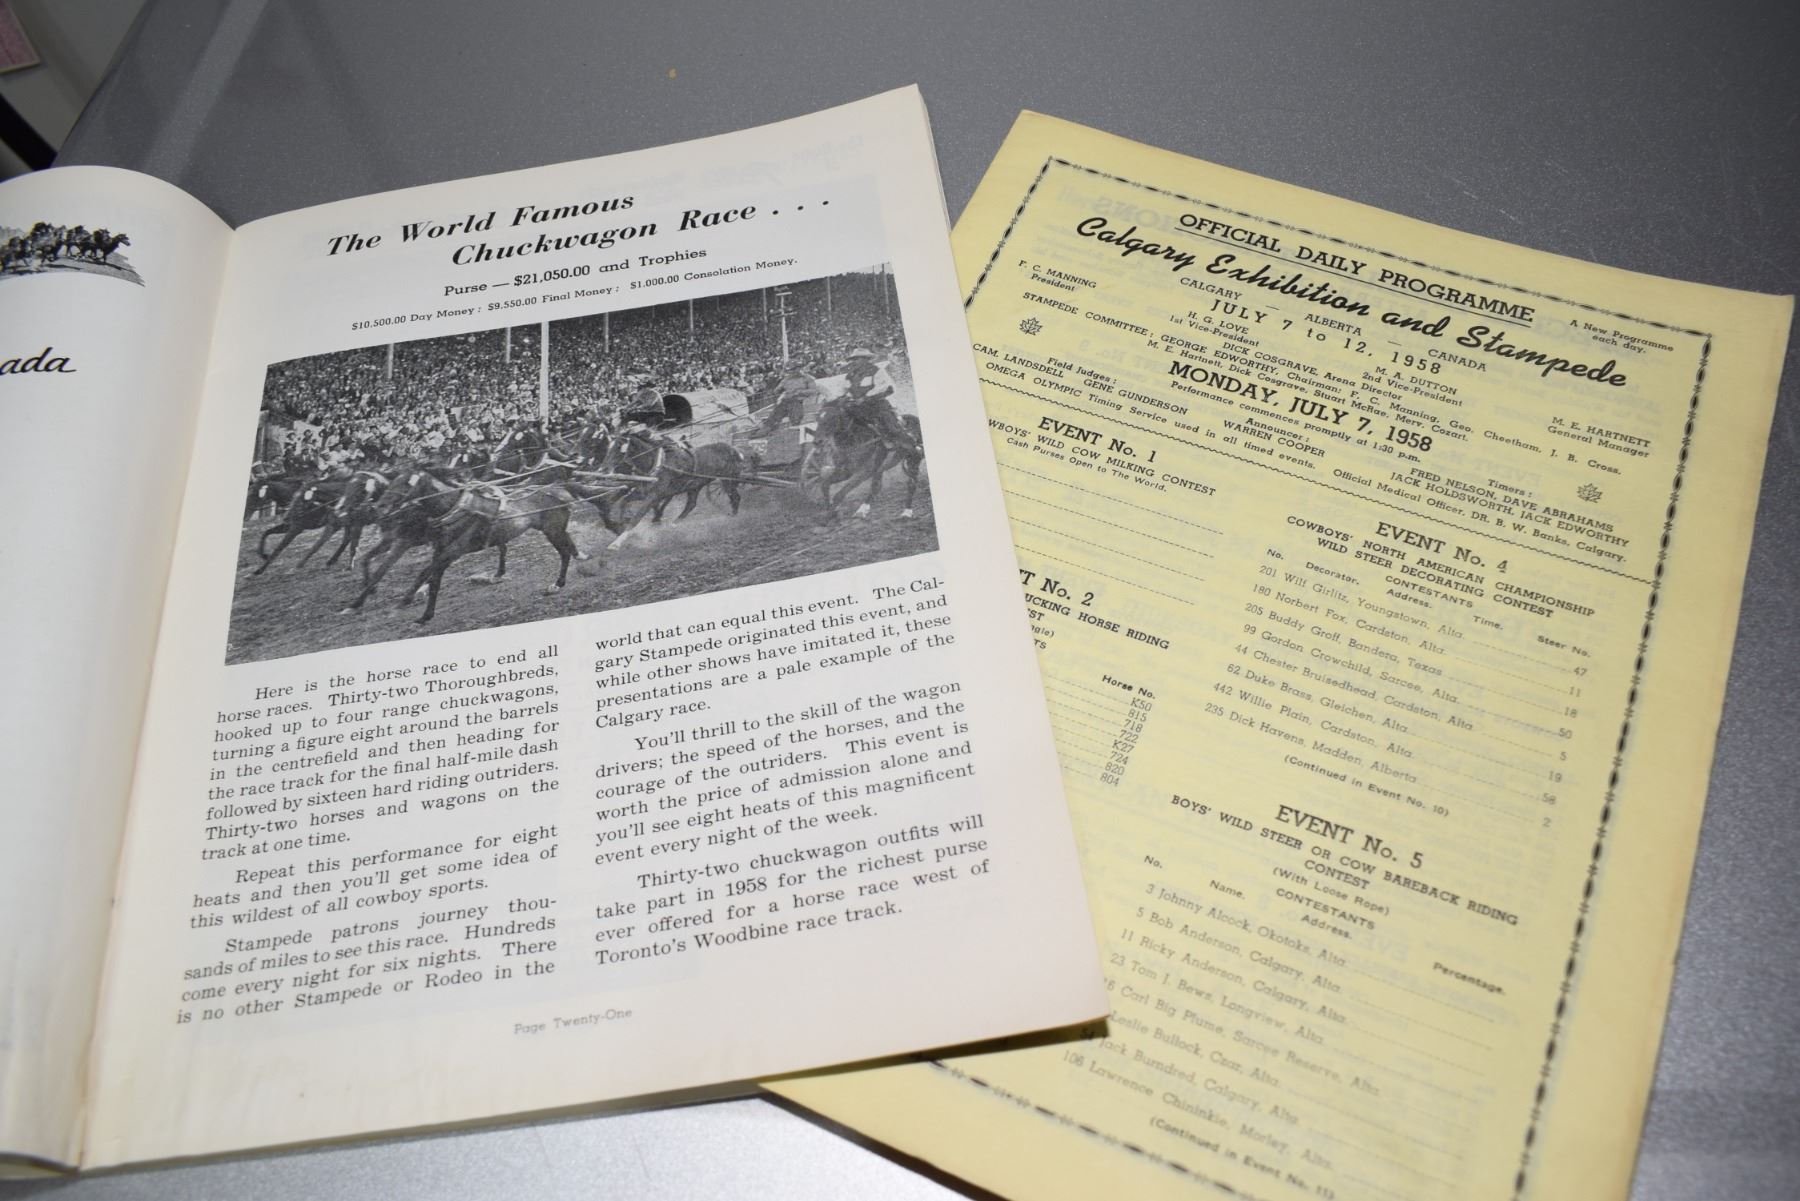 ada
The World Famous
Chuckwagon Race . . .
Purse — $21,050.00 and Trophies
$10,500.00 Day Money; $9,550.00 Final Money; $1,000.00 Consolation Money.
Here is the horse race to end all
horse races. Thirty-two Thoroughbreds,
hooked up to four range chuckwagons,
turning a figure eight around the barrels
in the centrefield and then heading for
the race track for the final half-mile dash
followed by sixteen hard riding outriders.
Thirty-two horses and wagons on the
track at one time.
Repeat this performance for eight
heats and then you'll get some idea of
this wildest of all cowboy sports.
Stampede patrons journey thou-
sands of miles to see this race. Hundreds
come every night for six nights. There
is no other Stampede or Rodeo in the
world that can equal this event. The Cal-
gary Stampede originated this event, and
while other shows have imitated it, these
presentations are a pale example of the
Calgary race.
You'll thrill to the skill of the wagon
drivers; the speed of the horses, and the
courage of the outriders. This event is
worth the price of admission alone and
you'll see eight heats of this magnificent
event every night of the week.
Thirty-two chuckwagon outfits will
take part in 1958 for the richest purse
ever offered for a horse race west of
Toronto's Woodbine race track.
Page Twenty-One
OFFICIAL DAILY PROGRAMME
A New Programme
each day.
Calgary Exhibition and Stampede
CALGARY — ALBERTA — CANADA
JULY 7 to 12, 1958
F. C. MANNING
President
H. G. LOVE
1st Vice-President
M. A. DUTTON
2nd Vice-President
M. E. HARTNETT
General Manager
DICK COSGRAVE, Arena Director
STAMPEDE COMMITTEE: GEORGE EDWORTHY, Chairman; F. C. Manning, Geo. Cheetham, J. B. Cross,
M. E. Hartnett, Dick Cosgrave, Stuart McRae, Merv. Cozart.
MONDAY, JULY 7, 1958
Performance commences promptly at 1:30 p.m.
Field Judges:
CAM. LANDSDELL GENE GUNDERSON
Announcer:
WARREN COOPER
Timers:
FRED NELSON, DAVE ABRAHAMS
JACK HOLDSWORTH, JACK EDWORTHY
OMEGA OLYMPIC Timing Service used in all timed events. Official Medical Officer, DR. B. W. Banks, Calgary.
EVENT No. 1
WBOYS' WILD COW MILKING CONTEST
Cash Purses Open to The World.
T No. 2
UCKING HORSE RIDING
EST
ngle)
TS
Horse No.
K50
815
718
722
K27
724
820
804
EVENT No. 4
COWBOYS' NORTH AMERICAN CHAMPIONSHIP
WILD STEER DECORATING CONTEST
CONTESTANTS
No. Decorator. Address. Time. Steer No.
201 Wilf Girlitz, Youngstown, Alta. 47
180 Norbert Fox, Cardston, Alta. 11
205 Buddy Groff, Bandera, Texas 18
99 Gordon Crowchild, Sarcee, Alta. 50
44 Chester Bruisedhead, Cardston, Alta. 5
62 Duke Brass, Gleichen, Alta. 19
442 Willie Plain, Cardston, Alta. 58
235 Dick Havens, Madden, Alberta 2
(Continued in Event No. 10)
EVENT No. 5
BOYS' WILD STEER OR COW BAREBACK RIDING
CONTEST
(With Loose Rope)
CONTESTANTS
No. Name. Address. Percentage.
3 Johnny Alcock, Okotoks, Alta.
5 Bob Anderson, Calgary, Alta.
11 Ricky Anderson, Calgary, Alta.
23 Tom J. Bews, Longview, Alta.
6 Carl Big Plume, Sarcee Reserve, Alta.
Leslie Bullock, Czar, Alta.
54 Jack Burndred, Calgary, Alta.
106 Lawrence Chininkie, Morley, Alta.
(Continued in Event No. 11)